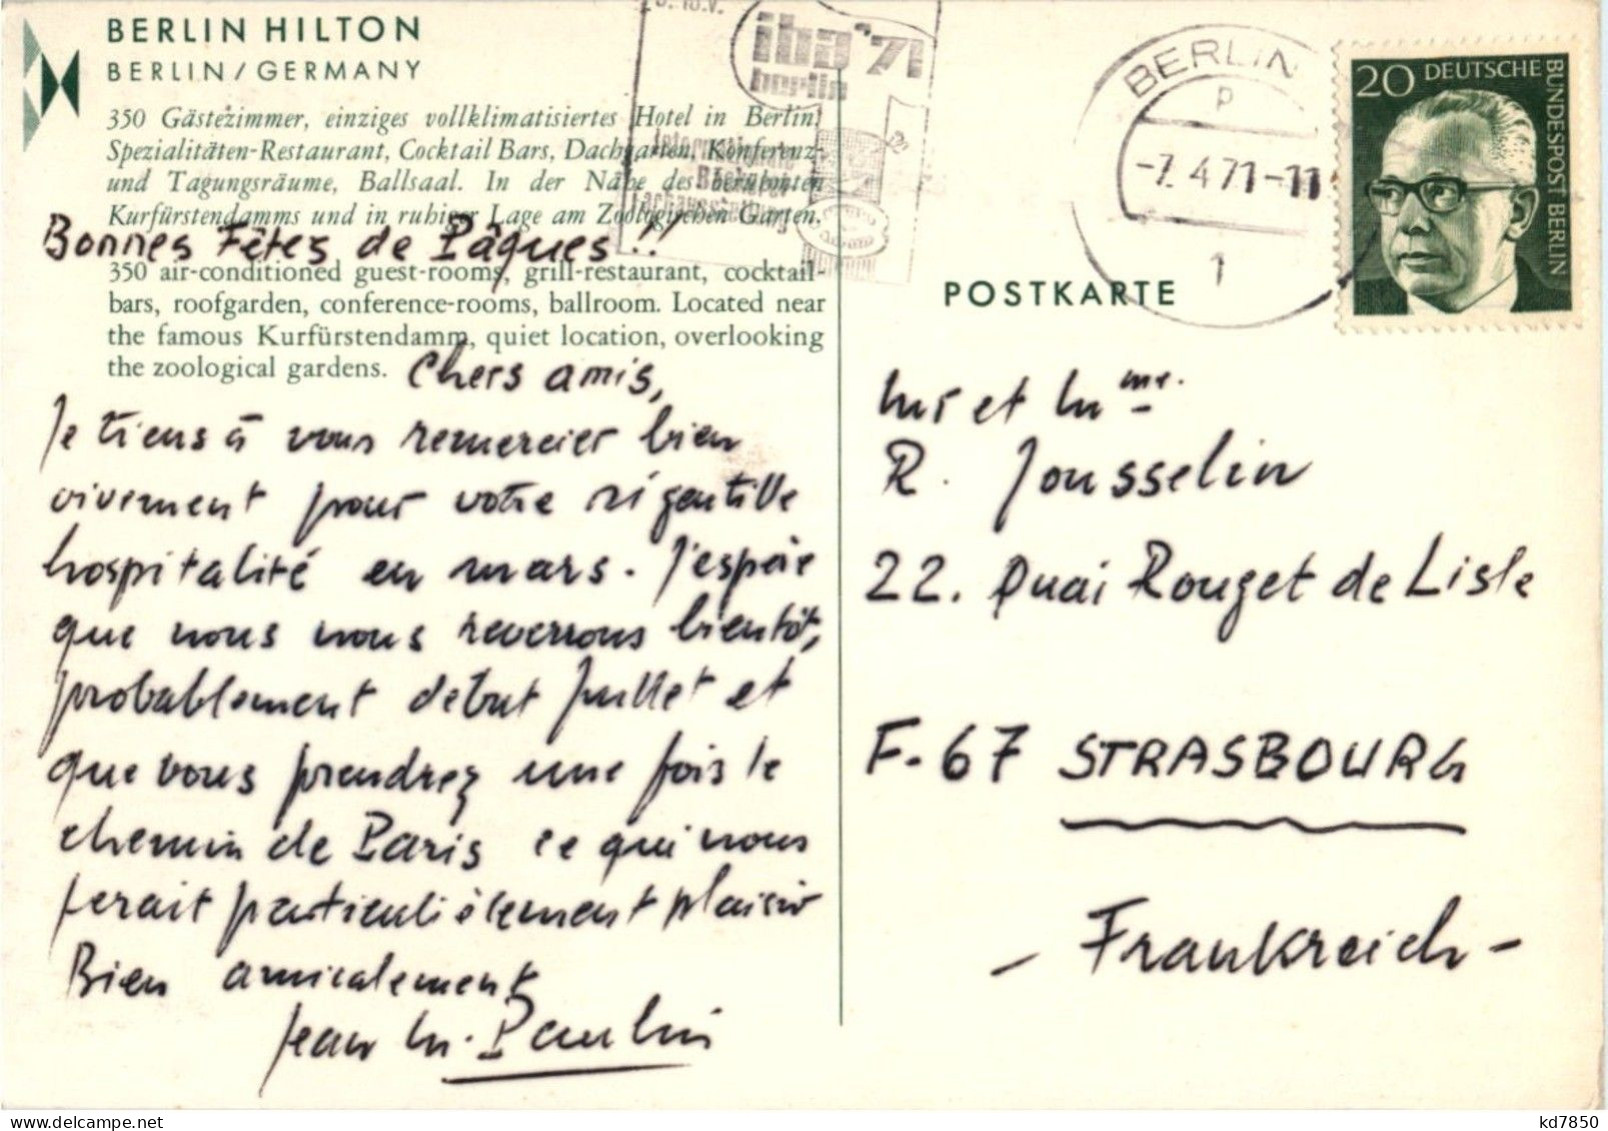 BERLIN HILTON
BERLIN / GERMANY
350 Gästezimmer, einziges vollklimatisiertes Hotel in Berlin,
Spezialitäten-Restaurant, Cocktail Bars, Dachgarten, Konferenz-
und Tagungsräume, Ballsaal. In der Nähe des berühmten
Kurfürstendamms und in ruhiger Lage am Zoologischen Garten.
Bonnes Fêtes de Pâques !!
350 air-conditioned guest-rooms, grill-restaurant, cocktail-
bars, roofgarden, conference-rooms, ballroom. Located near
the famous Kurfürstendamm, quiet location, overlooking
the zoological gardens.
Chers amis,
Je tiens à vous remercier bien
vivement pour votre si gentille
hospitalité en mars. J'espère
que nous nous reverrons bientôt,
probablement début Juillet et
que vous prendrez une fois le
chemin de Paris ce qui nous
ferait particulièrement plaisir
Bien amicalement
Jean M. Paulin
iba '71
berlin
BERLIN
P
-7.4.71-11
1
20 DEUTSCHE
BUNDESPOST BERLIN
POSTKARTE
Mr et Mme.
R. Jousselin
22. Quai Rouget de Lisle
F-67 STRASBOURG
- Frankreich -
kd7850